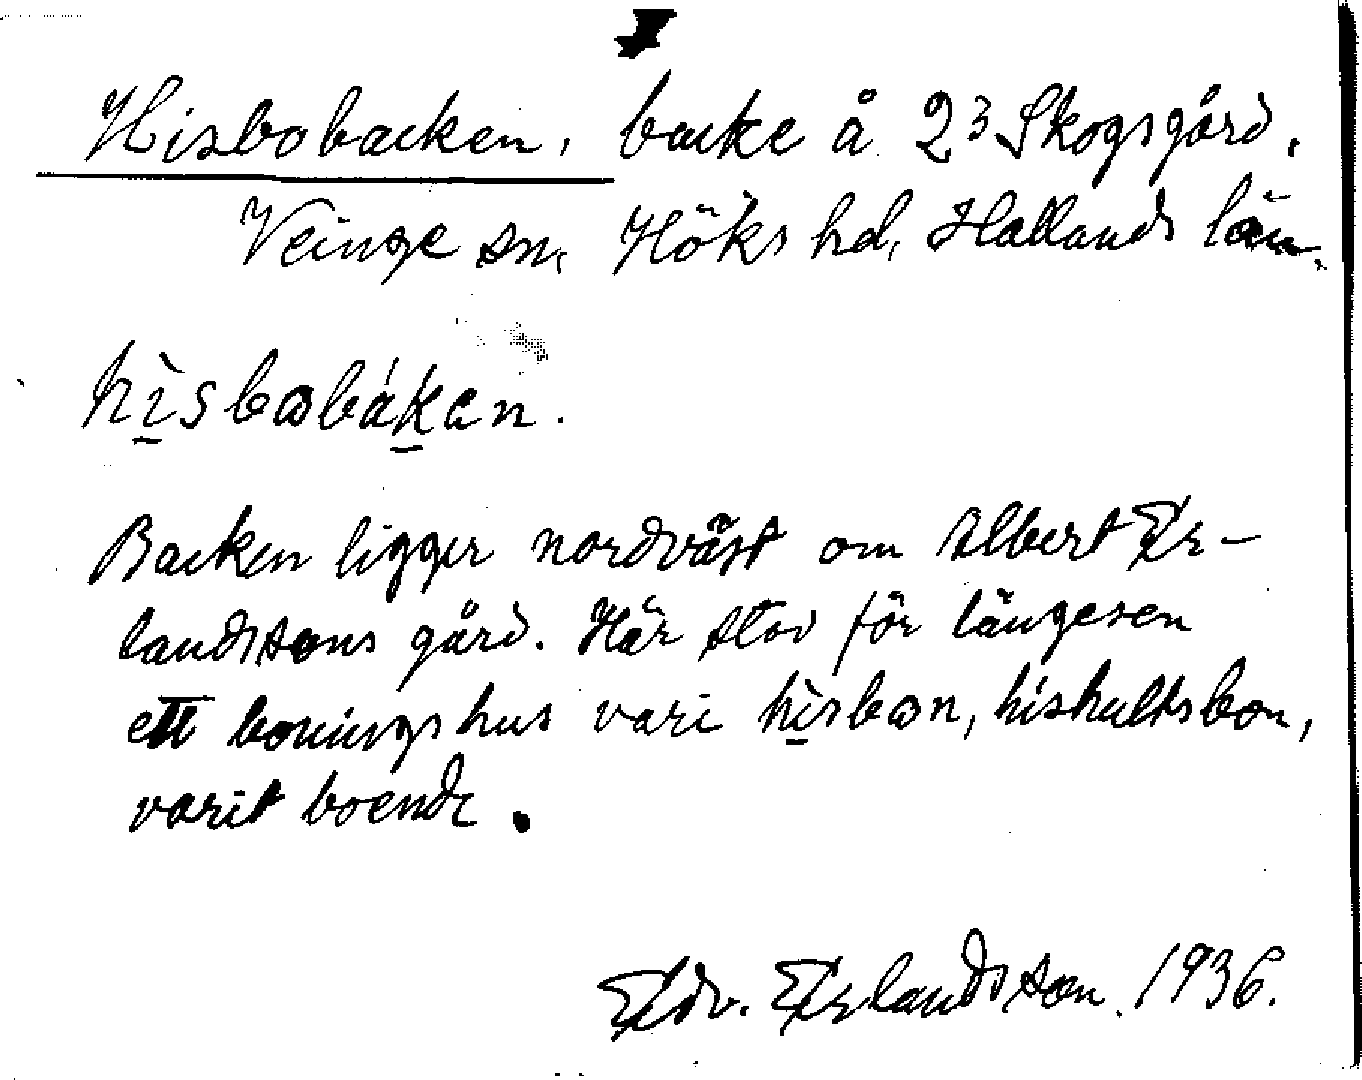 Hisbobacken, backe å 2³ Skogsgård.
Veinge sn, Höks hd, Hallands län.
hìsbⱺbákan.
Backen ligger nordväst om Albert Er-
landssons gård. Här stod för längesen
ett boningshus vari hìsbⱺn, hishultsbon,
varit boende.
Edv. Erlandsson. 1936.